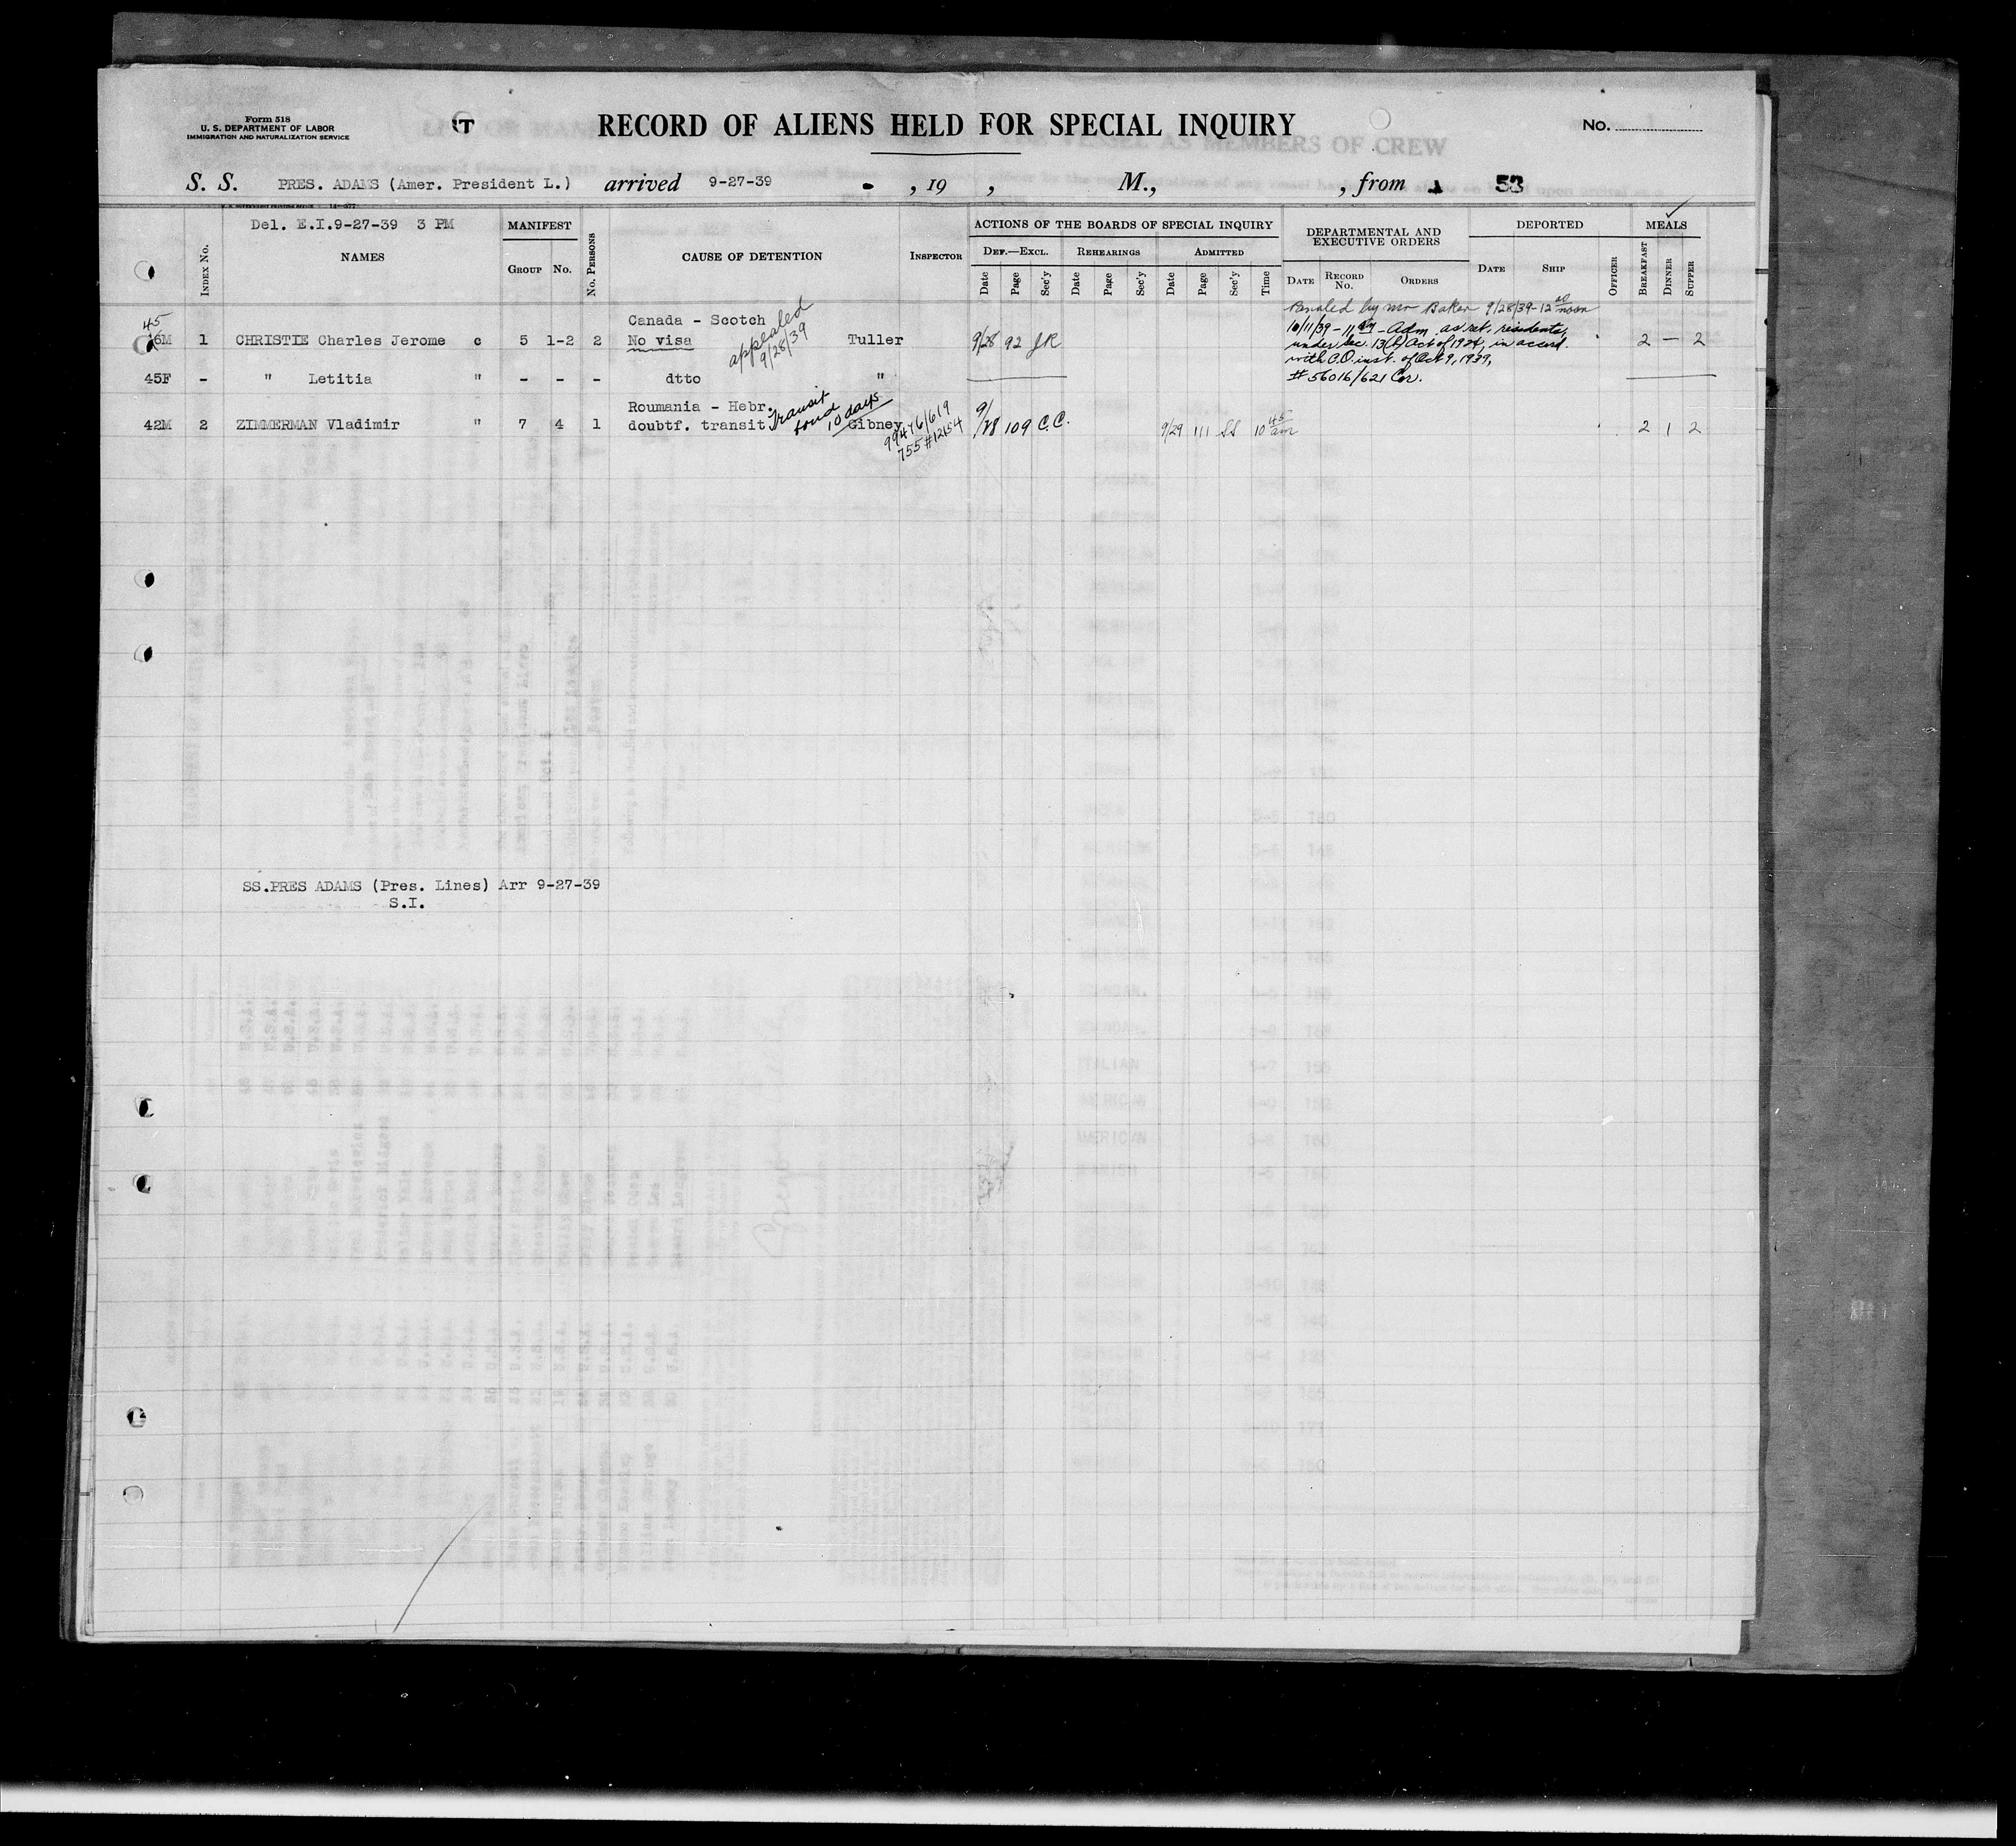 Form 518
U. S. DEPARTMENT OF LABOR
IMMIGRATION AND NATURALIZATION SERVICE
RECORD OF ALIENS HELD FOR SPECIAL INQUIRY
No.
S. S. PRES. ADAMS (Amer. President L.) arrived 9-27-39 , 19 , M., , from 53
Del. E.I.9-27-39 3 PM
INDEX No.
NAMES
MANIFEST
GROUP No.
No. PERSONS
CAUSE OF DETENTION
INSPECTOR
ACTIONS OF THE BOARDS OF SPECIAL INQUIRY
DEF.—EXCL. REHEARINGS ADMITTED
Date Page Sec'y Date Page Sec'y Date Page Sec'y Time
DEPARTMENTAL AND
EXECUTIVE ORDERS
DATE RECORD No. ORDERS
DEPORTED
DATE SHIP OFFICER
MEALS
BREAKFAST DINNER SUPPER
Canada - Scotch
45
46M 1 CHRISTIE Charles Jerome c 5 1-2 2 No visa appealed 9/28/39 Tuller 9/28 92 JR 2 — 2
Paroled by Mr Baker 9/28/39-12 noon
10/11/39 - 11 AM - Adm. as ret. residents,
under Sec. 13(b) Act of 1924, in accord.
with C.O. inst. of Oct 9, 1939,
# 56016/621 Cor.
45F - " Letitia " - - - dtto "
Roumania - Hebr.
42M 2 ZIMMERMAN Vladimir " 7 4 1 doubtf. transit Transit 10 days Gibney 99476/619 755 #12154 9/28 109 C.C. 9/29 111 SS 10 45 am 2 1 2
SS.PRES ADAMS (Pres. Lines) Arr 9-27-39
S.I.